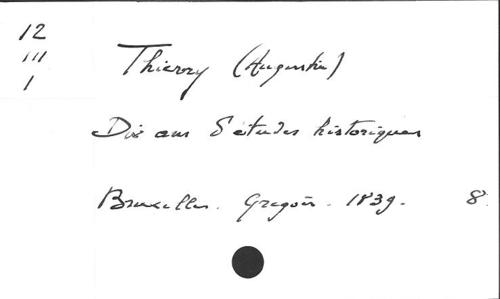 12
III
1
Thierry (Augustin)
Dix ans d'études historiques
Bruxelles. Gregoir. 1839. 8